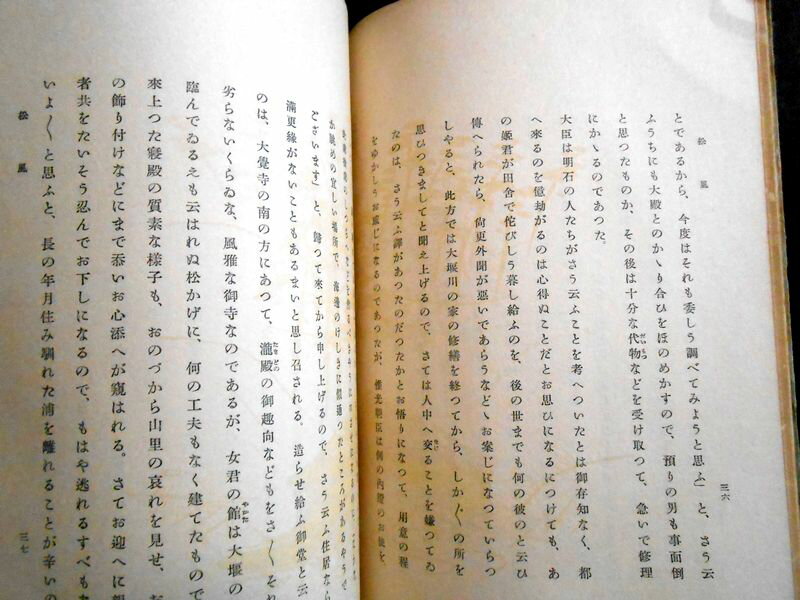 松風
三六
とであるから、今度はそれも委しう調べてみようと思ふ」と、さう云
ふうちにも大殿とのかゝり合ひをほのめかすので、預りの男も事面倒
と思つたものか、その後は十分な代物などを受け取つて、急いで修理
にかゝるのであつた。
大臣は明石の人たちがさう云ふことを考へついたとは御存知なく、都
へ來るのを億劫がるのは心得ぬことだとお思ひになるにつけても、あ
の姬君が田舍で侘びしう暮し給ふのを、後の世までも何の彼のと云ひ
傳へられたら、尙更外聞が惡いであらうなどゝお案じになつていらつ
しやると、此方では大堰川の家の修繕を終つてから、しか〴〵の所を
思ひつきましてと聞え上げるので、さては人中へ交ることを嫌つてゐ
たのは、さう云ふ譯があつたのだつたかとお悟りになつて、用意の程
をゆかしうお感じになるのであつたが、惟光朝臣は例の內證のお使を
か眺めの宜しい場所で、海邊のけしきに似通つたところがあるやうで
ございます」と、歸つて來てから申し上げるので、さう云ふ住居なら
滿更緣がないこともあるまいと思し召される。造らせ給ふ御堂と云
のは、大覺寺の南の方にあつて、瀧殿の御趣向などもをさ〳〵それ
劣らないくらゐな、風雅な御寺なのであるが、女君の館は大堰の
臨んでゐるえも云はれぬ松かげに、何の工夫もなく建てたもので
來上つた寢殿の質素な樣子も、おのづから山里の哀れを見せ、
の飾り付けなどにまで添いお心添へが窺はれる。さてお迎へに
者共をたいそう忍んでお下しになるので、もはや逃れるすべもあ
いよ〳〵と思ふと、長の年月住み馴れた浦を離れることが辛いの
松風
三七